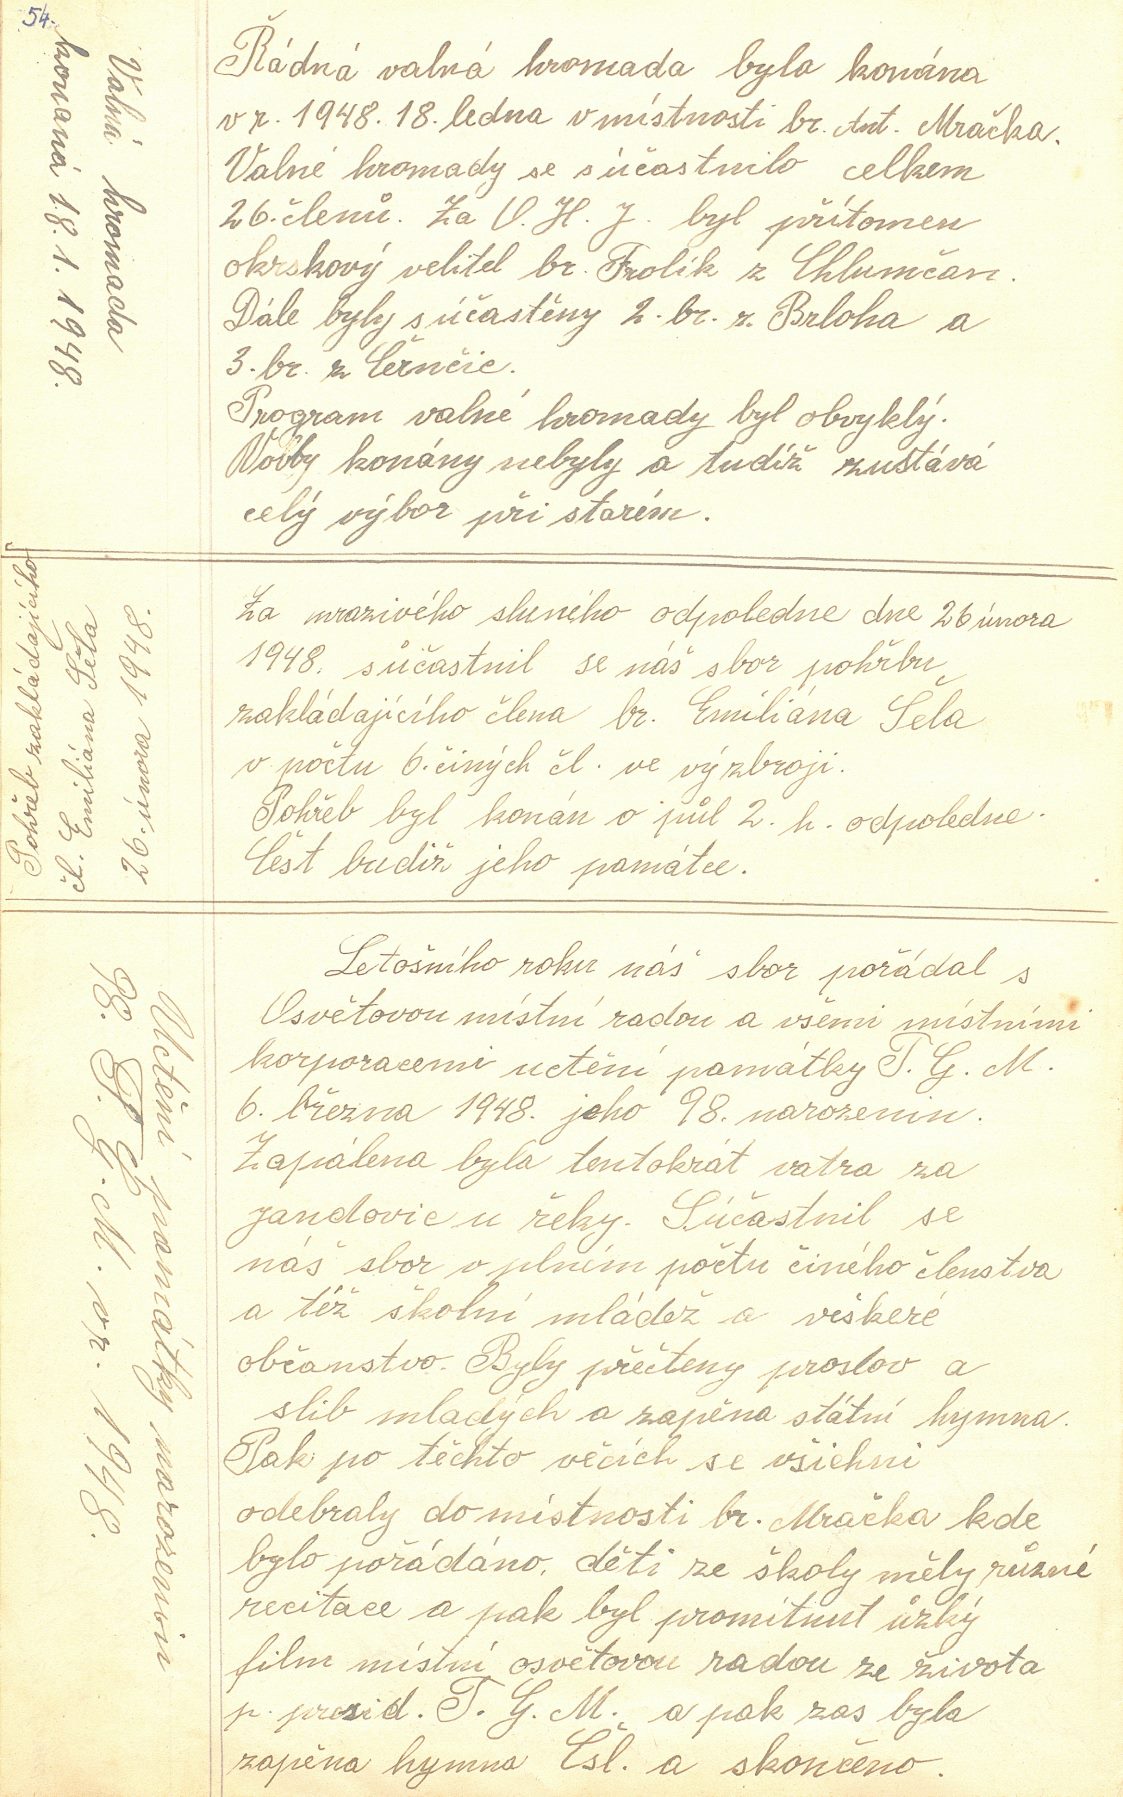 54.
Valná hromada
konaná 18. 1. 1948.
Řádná valná hromada byla konána
v r. 1948. 18. ledna v místnosti br. Ant. Mračka.
Valné hromady se súčastnilo celkem
26. členů. Za O. H. J. byl přítomen
okrskový velitel br. Frolík z Chlumčan.
Dále byly súčastěny 2. br. z Brloha a
3. br. z Černčic.
Program valné hromady byl obvyklý.
Volby konány nebyly a tudíž zustává
celý výbor při starém.
Pohřeb zakládajícího
čl. Emiliána Šéla
26. února 1948.
Za mrazivého sluného odpoledne dne 26 února
1948. sůčastnil se náš sbor pohřbu
zakládajícího člena br. Emiliána Šéla
v počtu 6. činých čl. ve výzbroji.
Pohřeb byl konán o půl 2. h. odpoledne.
Čest budiž jeho památce.
Uctění památky narozenin
P. T. G. M. v r. 1948.
Letošního roku náš sbor pořádal s
Osvětovou místní radou a všemi místními
korporacemi uctění památky T. G. M.
6. března 1948. jeho 98. narozenin.
Zapálena byla tentokrát vatra za
Jandovic u řeky. Súčastnil se
náš sbor v plném počtu činého členstva
a též školní mládež a veškeré
občanstvo. Byly přečteny proslov a
slib mladých a zapěna státní hymna.
Pak po těchto věcích se všichni
odebraly do místnosti br. Mračka kde
bylo pořádáno, děti ze školy měly různé
recitace a pak byl promítnut úzký
film místní osvětovou radou ze života
p. presid. T. G. M. a pak zas byla
zapěna hymna Čsl. a skončeno.